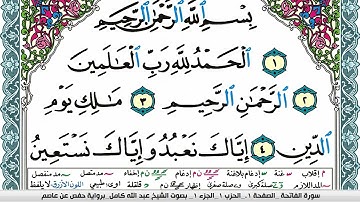 بِسْمِ ٱللَّهِ ٱلرَّحْمَٰنِ ٱلرَّحِيمِ
١ ٱلْحَمْدُ لِلَّهِ رَبِّ ٱلْعَٰلَمِينَ
٢ ٱلرَّحْمَٰنِ ٱلرَّحِيمِ ٣ مَٰلِكِ يَوْمِ
ٱلدِّينِ ٤ إِيَّاكَ نَعْبُدُ وَإِيَّاكَ نَسْتَعِينُ
سورة الفاتحة . الصفحة 1 . الحزب 1 . الجزء 1 . بصوت الشيخ عبد الله كامل . برواية حفص عن عاصم